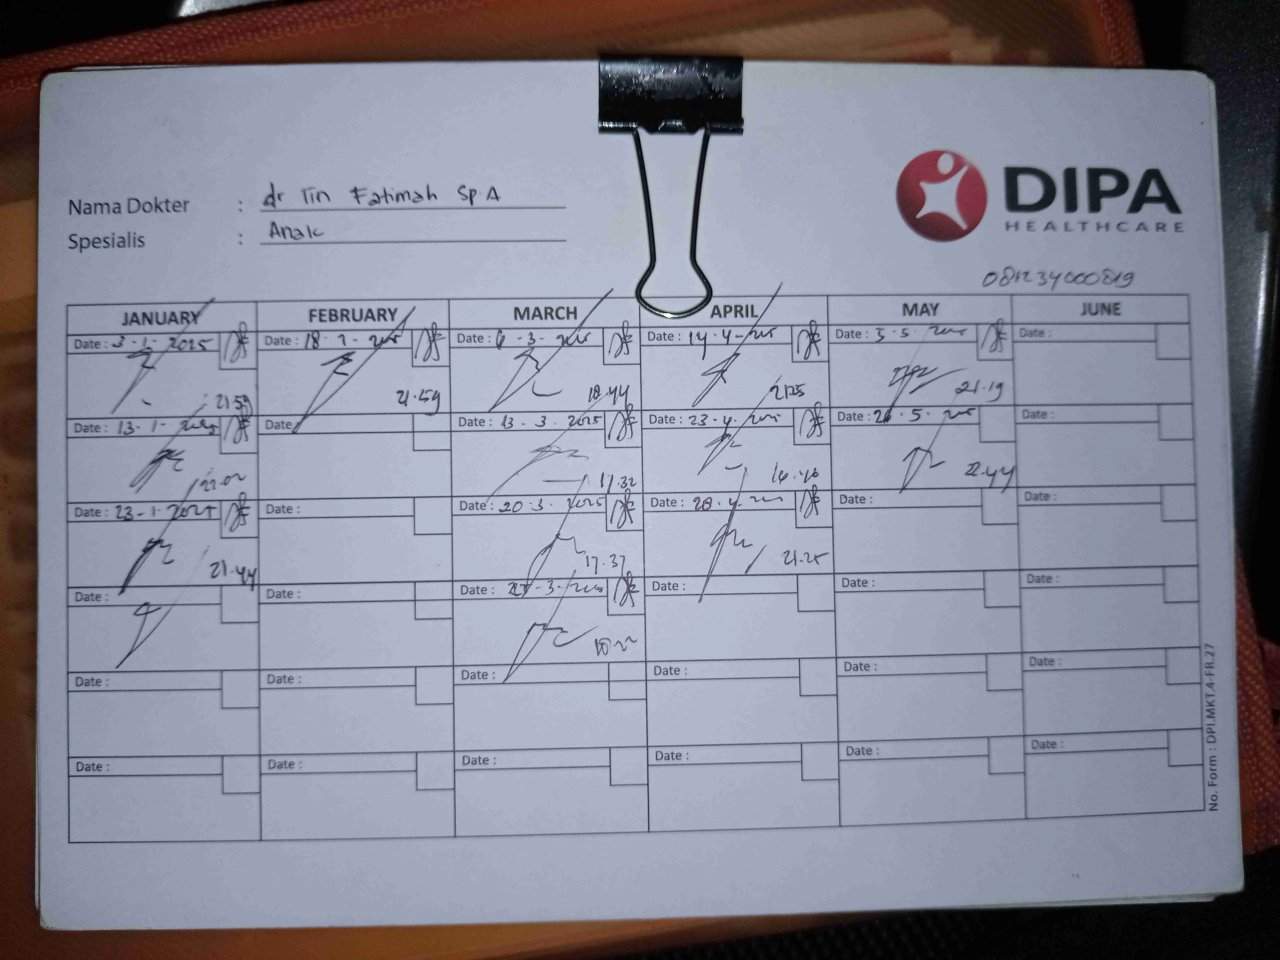 DIPA
HEALTHCARE
Nama Dokter : dr Iin Fatimah Sp.A
Spesialis : Anak
081234000819
JANUARY FEBRUARY MARCH APRIL MAY JUNE
Date : 3-1-2025 Date : 18 Date : 6-3- Date : 14-4- Date : 5-5- Date :
21.59 21.59 18.44 2125 21.19
Date : 13-1- Date : Date : 13-3-2025 Date : 23-4- Date : 26-5- Date :
22.02 17.32 16.46 22.44
Date : 23-1- Date : Date : 20-3-2025 Date : 28-4- Date : Date :
21.44 17.37 21.25
Date : Date : Date : 27-3- Date : Date : Date :
Date : Date : Date : Date : Date : Date :
Date : Date : Date : Date : Date : Date :
No. Form : DPI.MKT.4-FR.27